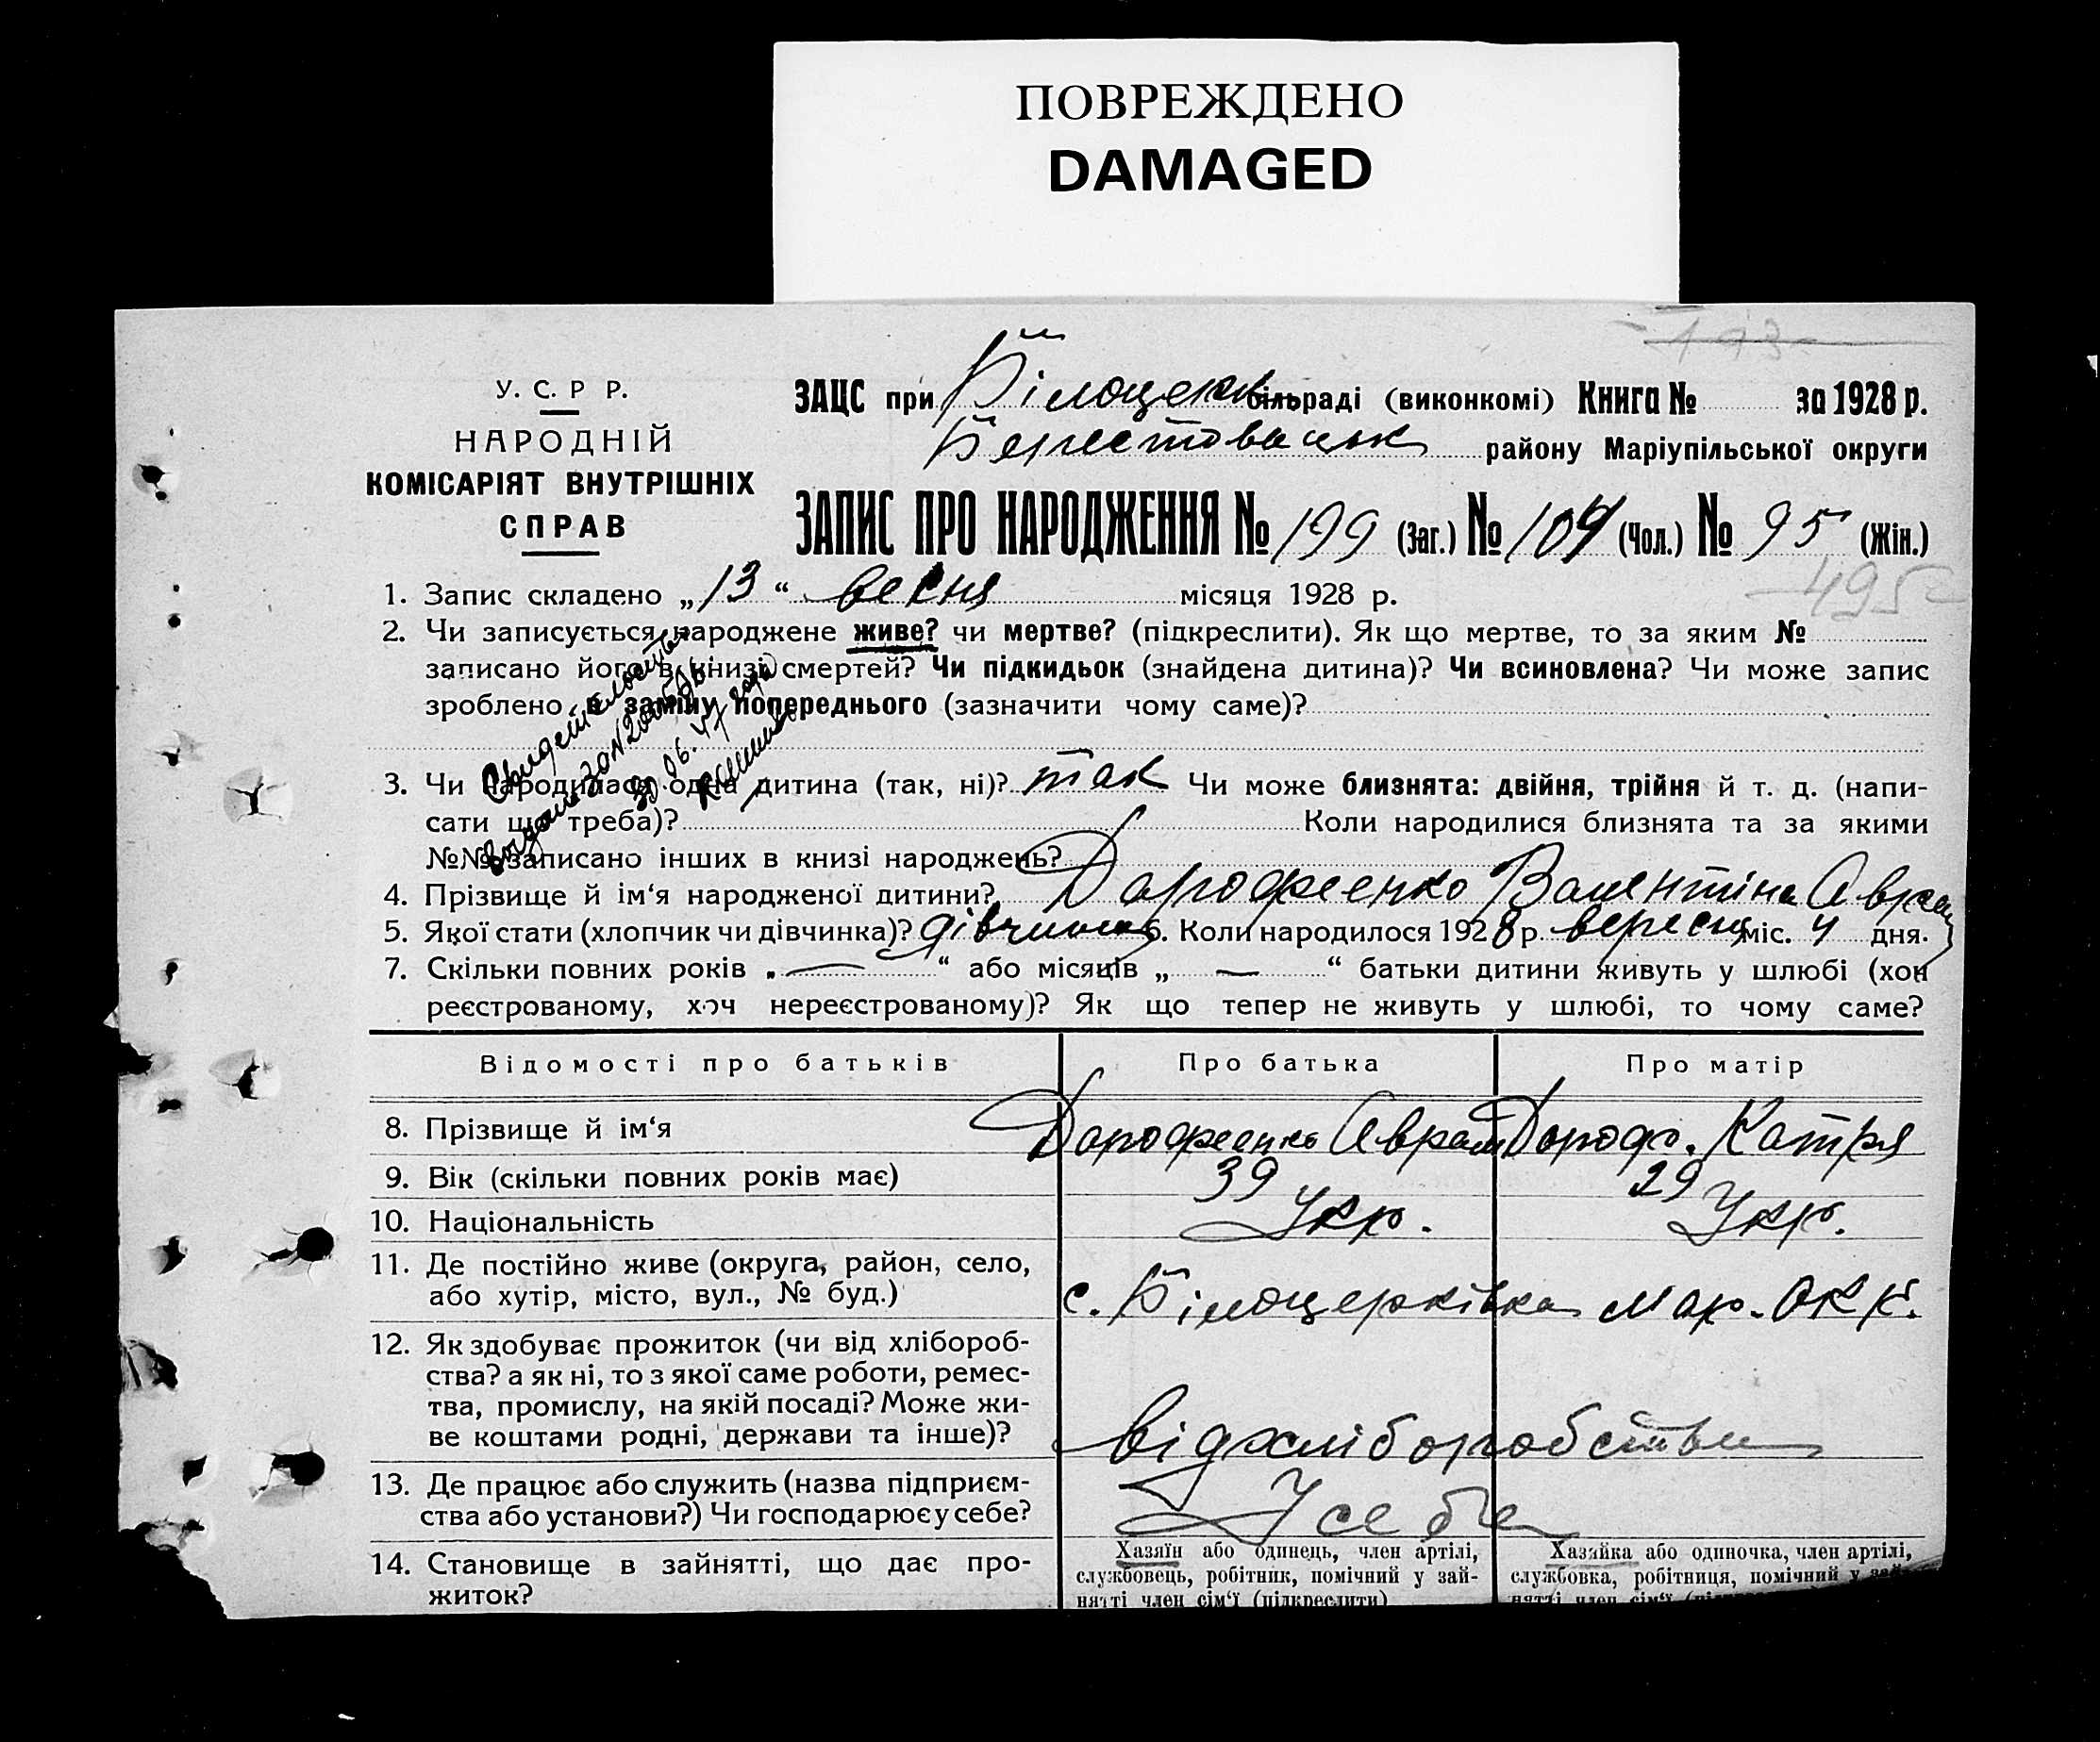 ПОВРЕЖДЕНО
DAMAGED
193
У. С. Р Р.
НАРОДНІЙ
КОМІСАРІЯТ ВНУТРІШНІХ
СПРАВ
ЗАЦС при Білоцерк сільраді (виконкомі) Книга № за 1928 р.
Берестовацьк району Маріупільської округи
ЗАПИС ПРО НАРОДЖЕННЯ № 199 (Заг.) № 104 (Чол.) № 95 (Жін.)
495
1. Запис складено „ 13 “ весня місяця 1928 р.
2. Чи записується народжене живе? чи мертве? (підкреслити). Як що мертве, то за яким №
записано його в книзі смертей? Чи підкидьок (знайдена дитина)? Чи всиновлена? Чи може запис
зроблено в заміну попереднього (зазначити чому саме)?
Свидетельство
30.06.47 года
3. Чи народилася одна дитина (так, ні)? так Чи може близнята: двійня, трійня й т. д. (напи-
сати що треба)? Коли народилися близнята та за якими
№№ записано інших в книзі народжень?
4. Прізвище й ім‘я народженої дитини? Дорофеенко Валентіна Аврам
5. Якої стати (хлопчик чи дівчинка)? дівчинка 6. Коли народилося 1928 р. вересня міс. 4 дня.
7. Скільки повних років „ — “ або місяців „ — “ батьки дитини живуть у шлюбі (хоч
реєстрованому, хоч нереєстрованому)? Як що тепер не живуть у шлюбі, то чому саме?
Відомості про батьків Про батька Про матір
8. Прізвище й ім‘я Дорофеенко Аврам Дороф. Катря
9. Вік (скільки повних років має) 39 29
10. Національність Укр. Укр.
11. Де постійно живе (округа, район, село,
або хутір, місто, вул., № буд.) с. Білоцерківка Мар. Окр.
12. Як здобуває прожиток (чи від хлібороб-
ства? а як ні, то з якої саме роботи, ремес-
тва, промислу, на якій посаді? Може жи-
ве коштами родні, держави та інше)? від хліборобства
13. Де працює або служить (назва підприєм-
ства або установи?) Чи господарює у себе? У себе
14. Становище в зайнятті, що дає про-
житок?
Хазяїн або одинець, член артілі,
службовець, робітник, помічний у зай-
нятті член сім‘ї (підкреслити)
Хазяйка або одиночка, член артілі,
службовка, робітниця, помічний у зай-
нятті член сім‘ї